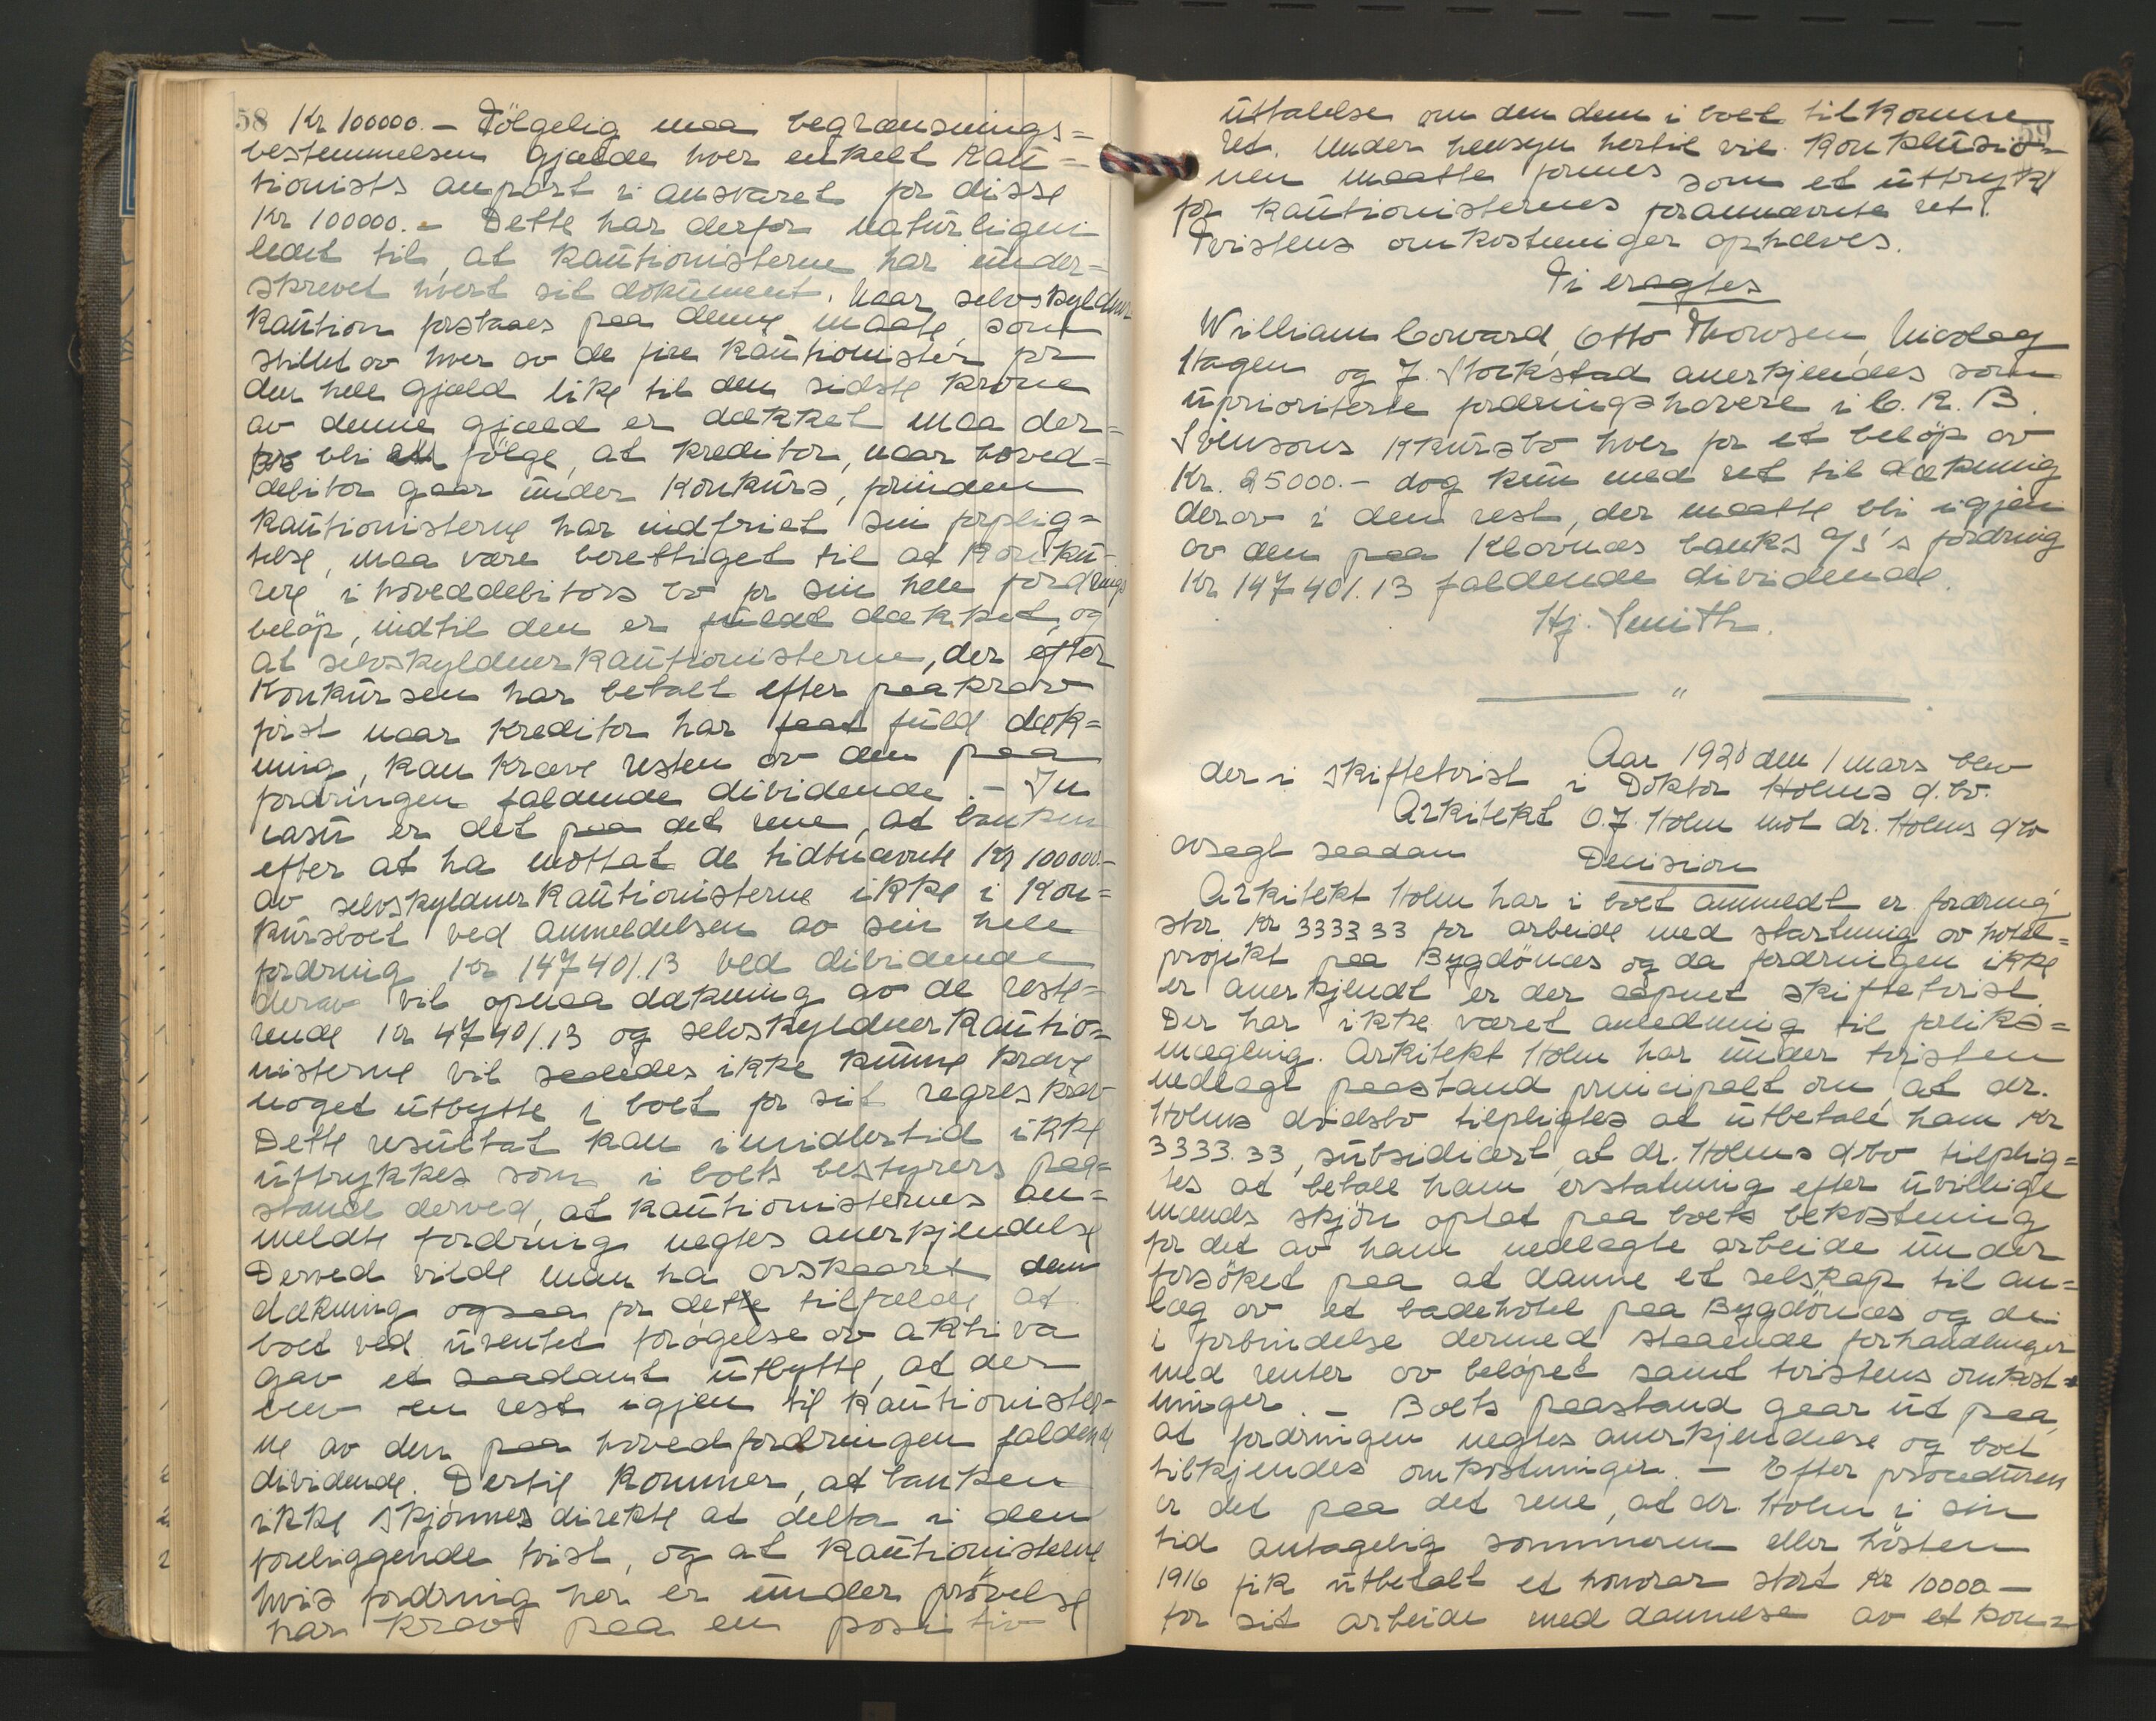 58 Kr 100000.- Følgelig maa begrænsnings=
bestemmelsen gjælde hver enkelt kau=
tionists anpart i ansvaret for disse
Kr 100000.- Dette har derfor naturligen
ledet til, at kautionisterne har under=
skrevet hvert sit dokument. Naar selvskyldner
kaution forstaaes paa denne maate, som
stillet av hver av de fire kautionister for
den hele gjæld like til den sidste krone
av denne gjæld er dækket maa der=
for bli følge, at kreditor, naar hoved=
debitor gaar under konkurs, forinden
kautionisterne har indfriet sin forplig=
telse, maa være berettiget til at konkur=
rere i hoveddebitors bo for sin hele fordrings
beløp, indtil den er fuldt dækket, og
at selvskyldnerkautionisterne, der efter
konkursen har betalt efter paakrav
først naar kreditor har faat fuld dæk=
ning, kan kræve resten av den paa
fordringen faldende dividende.- In
casu er det paa det rene, at banken
efter at ha mottat de tidtnævnte Kr 100000.-
av selvskyldnerkautionisterne ikke i kon=
kursboet ved anmeldelsen av sin hele
fordring Kr 147401.13 ved dividende
derav vil opnaa dækning av de reste=
rende Kr 47401.13 og selvskyldnerkautio=
nisterne vil saaledes ikke kunne kræve
noget utbytte i boet for sit regreskrav
Dette resultat kan imidlertid ikke
uttrykkes som i boets bestyrers paa=
stand derved, at kautionisternes an=
meldte fordring negtes anerkjendelse
Derved vilde man ha avskaaret dem
dækning ogsaa for dette tilfælde at
boet ved uventet forøgelse av aktiva
gav et saadant utbytte, at der
blev en rest igjen til kautionister=
ne av den paa hovedfordringen faldende
dividende. Dertil kommer, at banken
ikke skjønnes direkte at delta i den
foreliggende tvist, og at kautionisterne
hvis fordring her er under prøvelse
har krav paa en positiv
59
uttalelse om den dem i boet tilkomne
ret. Under hensyn hertil vil konklusio=
nen maatte formes som et uttryk
for kautionisternes forannævnte ret.
Tvistens omkostninger ophæves.
Ti eragtes
William Corvard, Otto Thowsen, Nicolay
Hagen og F. Stockstad anerkjendes som
uprioriterte fordringshavere i C. R. B.
Svensons kkursbo hver for et beløp av
Kr. 25000.- dog kun med ret til dækning
derav i den rest, der maatte bli igjen
av den paa Klavnæs banks A/S's fordring
Kr 147401.13 faldende dividende.
Hj. Smith.
"
Aar 1920 den 1 mars blev
der i skiftetvist i Doktor Holms d.bo.
Arkitekt O.F. Holm mot dr. Holms dbo
avsagt saadan
Decision
Arkitekt Holm har i boet anmeldt en fordring
stor Kr 3333 33 for arbeide med startning av hotel=
projekt paa Bygdønæs og da fordringen ikke
er anerkjendt er der aapnet skiftetvist.
Der har ikke været anledning til forliks=
mægling. Arkitekt Holm har under tvisten
nedlagt paastand principalt om, at dr.
Holms dødsbo tilpligtes at utbetale ham Kr
3333.33, subsidiært, at dr. Holms dbo tilplig=
tes at betale ham erstatning efter uvillige
mænds skjøn optat paa boets bekostning
for det av ham nedlagte arbeide under
forsøket paa at danne et selskap til an=
læg av et badehotel paa Bygdønæs og de
i forbindelse dermed staaende forhandlinger
med renter av beløpet samt tvistens omkost=
ninger.- Boets paastand gaar ut paa
at fordringen negtes anerkjendelse og boet
tilkjendes omkostninger.- Efter proceduren
er det paa det rene, at dr. Holm i sin
tid antagelig sommeren eller høsten
1916 fik utbetalt et honorar stort Kr 10000-
for sit arbeide med dannelse av et kon=